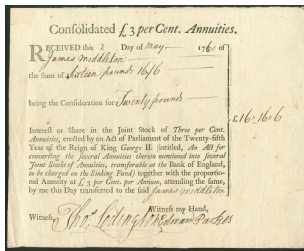 Consolidated £3 per Cent. Annuities.
RECEIVED this 2 Day of May 1760 of
James Middleton
the Sum of Sixteen pounds 16/6
being the Consideration for Twenty pounds
£16..16..6
Interest or Share in the Joint Stock of Three per Cent.
Annuities, erected by an Act of Parliament of the Twenty-fifth
Year of the Reign of King George II. (intitled, An Act for
converting the several Annuities therein mentioned into several
Joint Stocks of Annuities, transferable at the Bank of England,
to be charged on the Sinking Fund) together with the proportio-
nal Annuity at £3 per Cent. per Annum, attending the same,
by me this Day transferred to the said James Middleton
Witness my Hand,
Witness, Thos. Edward Parkes